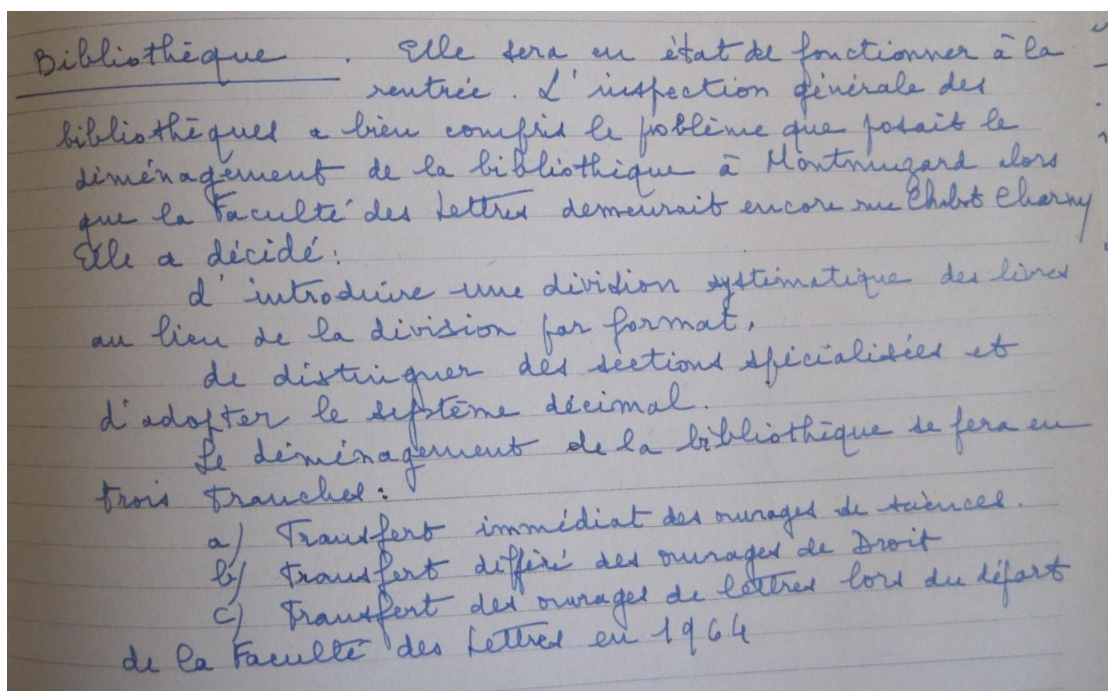 Bibliothèque. Elle sera en état de fonctionner à la
rentrée. L'inspection générale des
bibliothèques a bien compris le problème que posait le
déménagement de la bibliothèque à Montmuzard alors
que la Faculté des Lettres demeurait encore rue Chabot Charny
Elle a décidé :
d'introduire une division systématique des livres
au lieu de la division par format,
de distinguer des sections spécialisées et
d'adopter le système décimal.
Le déménagement de la bibliothèque se fera en
trois tranches :
a) Transfert immédiat des ouvrages de sciences.
b) Transfert différé des ouvrages de Droit
c) Transfert des ouvrages de lettres lors du départ
de la Faculté des Lettres en 1964